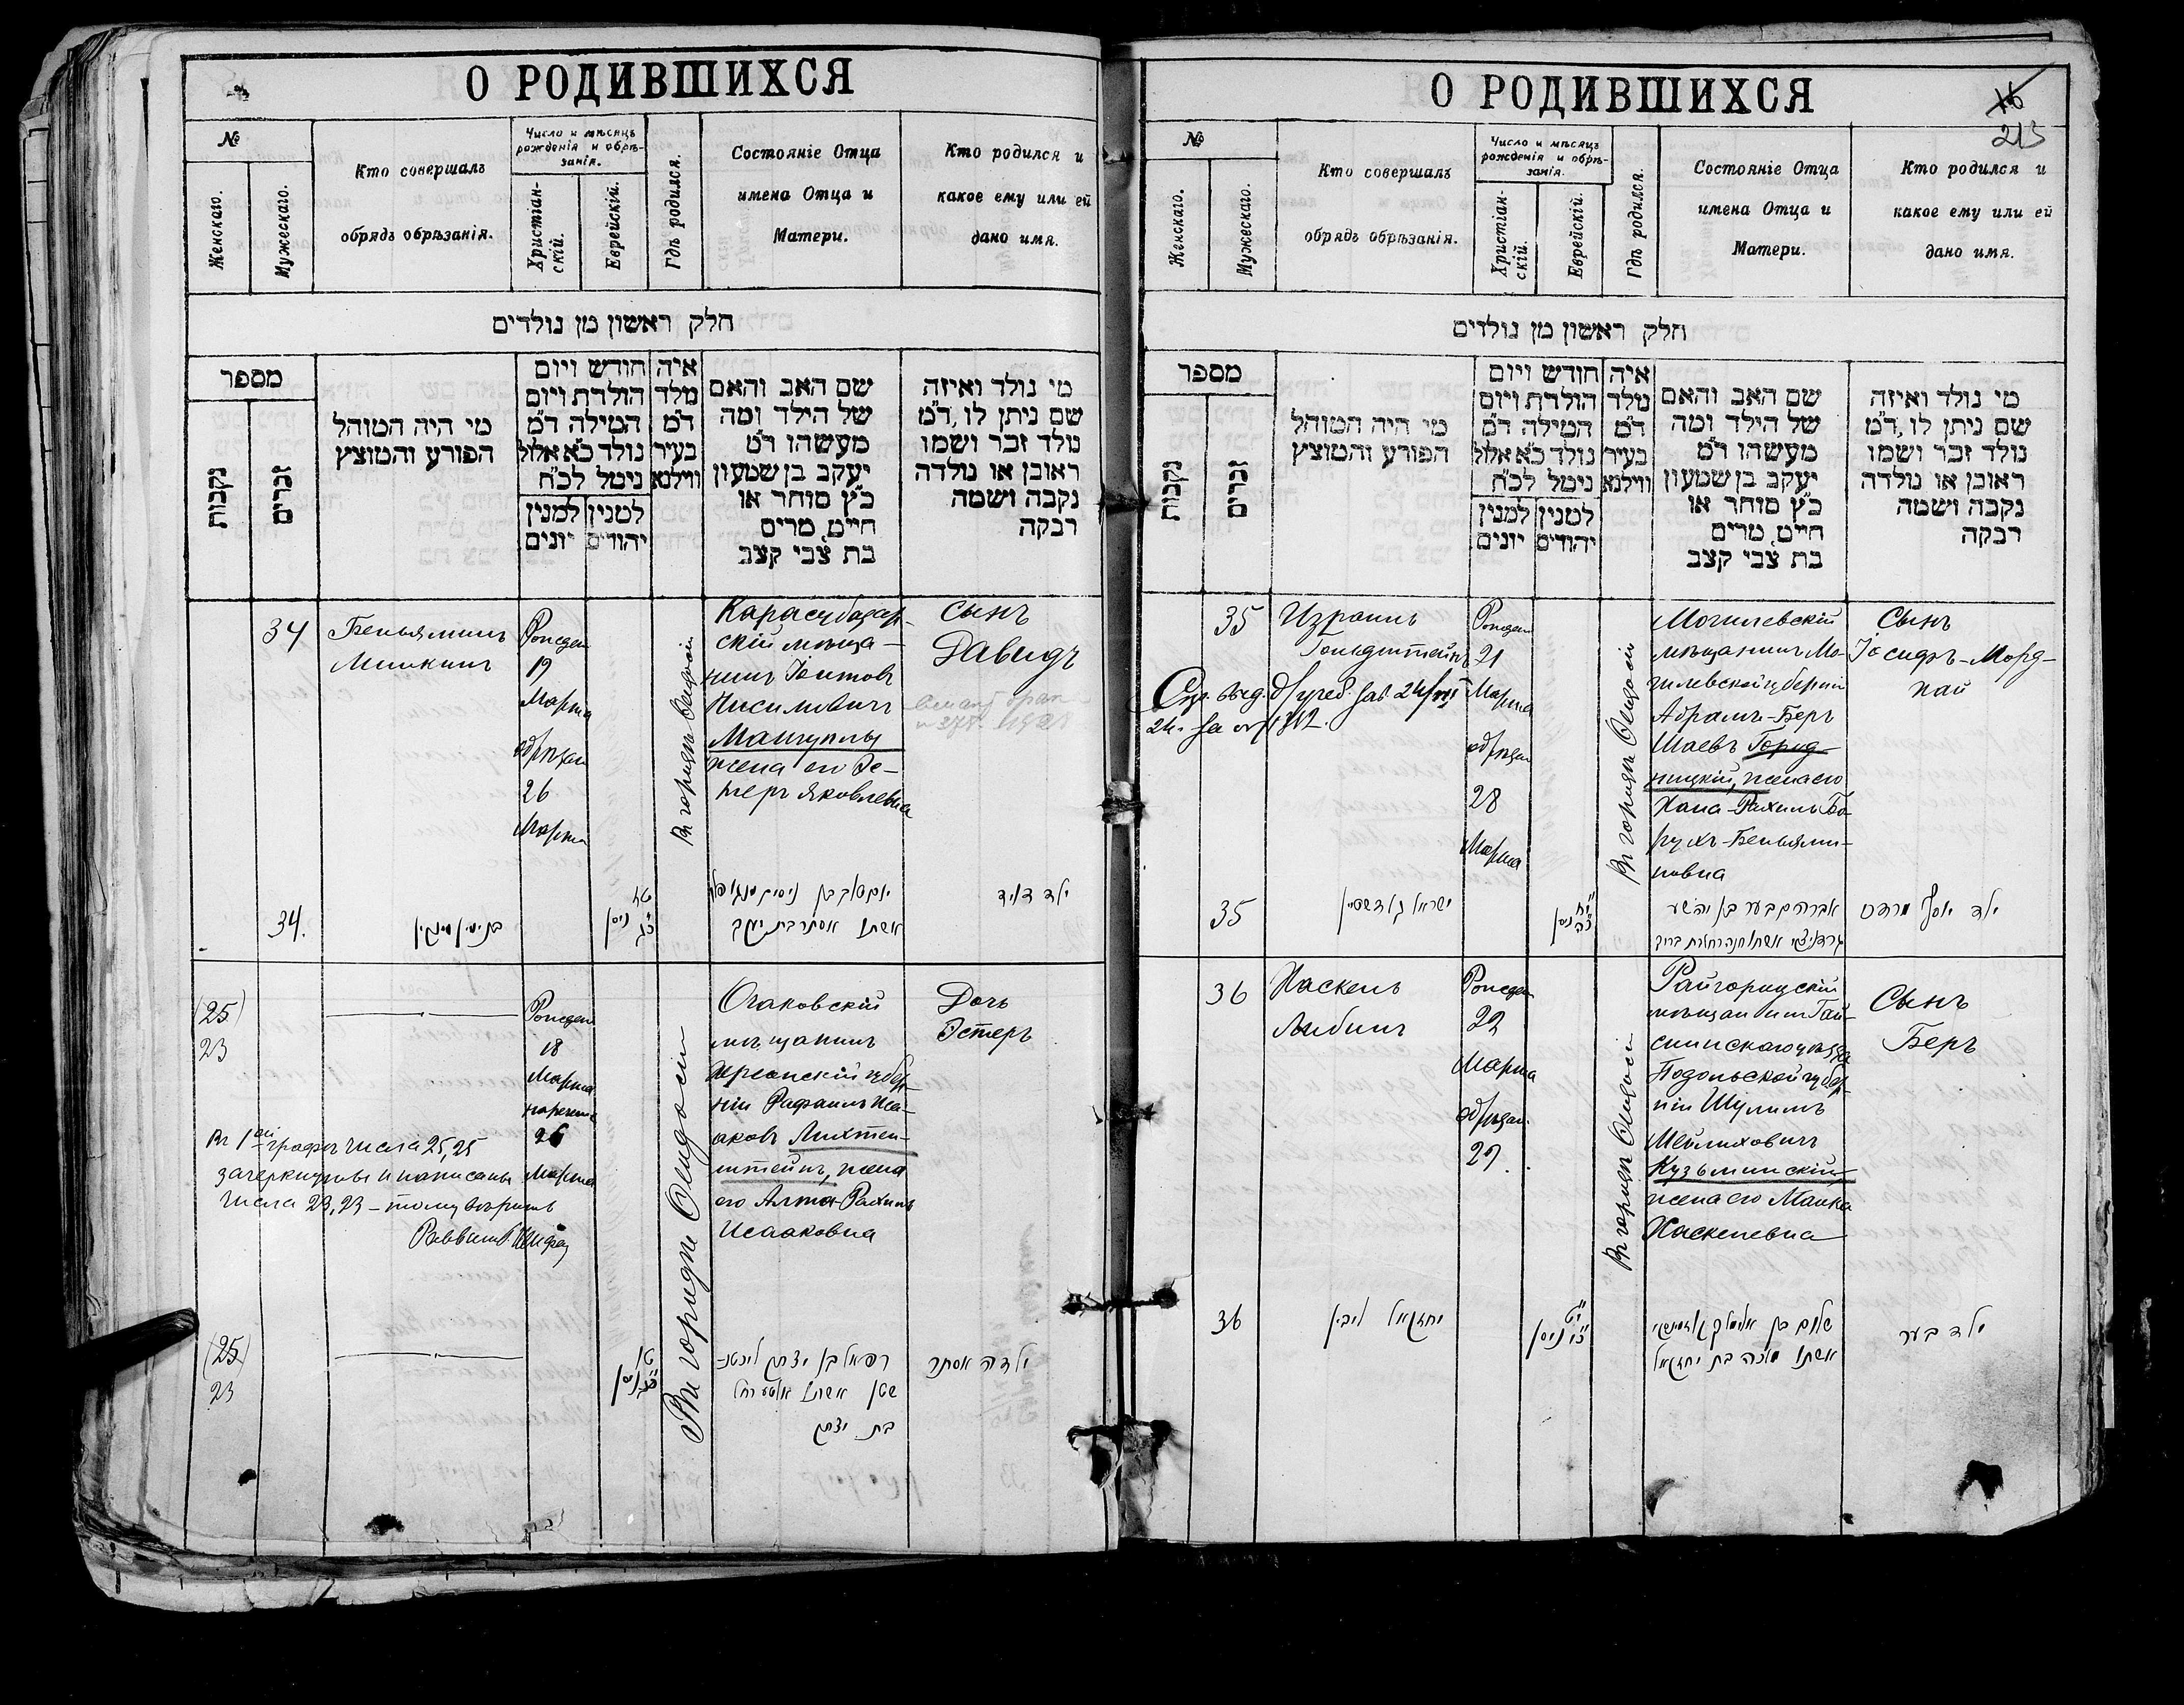 О РОДИВШИХСЯ
№
Женскаго.
Мужескаго.
Кто совершалъ
обрядъ обрѣзанія.
Число и мѣсяцъ
рожденія и обрѣ-
занія.
Христіан-
скій.
Еврейскій.
Гдѣ родился.
Состояніе Отца
имена Отца и
Матери.
Кто родился и
какое ему или ей
дано имя.
חלק ראשון מן נולדים
מספר
נקבות
זכרים
מי היה המוהל
הפורע והמוצץ
חודש ויום
הולדת ויום
המילה ד״מ
נולד כ״א אלול
ניטל לכ״ח
למנין
יונים
למנין
יהודים
איה
נולד
ד״מ
בעיר
ווילנא
שם האב והאם
של הילד ומה
מעשהו ד״מ
יעקב בן שמעון
כ״ץ סוחר או
חייט, מרים
בת צבי קצב
מי נולד ואיזה
שם ניתן לו, ד״מ
נולד זכר ושמו
ראובן או נולדה
נקבה ושמה
רבקה
34
Беньяминъ
Минкинъ
Рожден
19
Марта
обрѣзан
26
Марта
Въ городѣ Ѳеодосіи
Карасубазар-
скій мѣща-
нинъ Іомтовъ
Нисимовичъ
Мангупли
жена его Эс-
теръ Яковлевна
Сынъ
Давидъ
34.
בנימין מינקין
ניסן
יומטוב בן ניסים מנגופלי
אשתו אסתר בת יעקב
ילד דוד
(25)
23
Рожден
18
Марта
наречена
26
Марта
Въ городѣ Ѳеодосіи
Очаковскій
мѣщанинъ
Херсонской губер-
ніи Рафаилъ Иса-
аковъ Лихтен-
штейнъ, жена
его Алта-Рахиль
Исааковна
Дочь
Эстеръ
Въ 1ой графѣ числа 25, 25
зачеркнуты и написаны
числа 23, 23 – тому вѣрить
Раввинъ
(25)
23
ניסן
רפאל בן יצחק ליכטנ-
שטן אשתו אלטע רחל
בת יצחק
ילדה אסתר
О РОДИВШИХСЯ
16
213
№
Женскаго.
Мужескаго.
Кто совершалъ
обрядъ обрѣзанія.
Число и мѣсяцъ
рожденія и обрѣ-
занія.
Христіан-
скій.
Еврейскій.
Гдѣ родился.
Состояніе Отца
имена Отца и
Матери.
Кто родился и
какое ему или ей
дано имя.
חלק ראשון מן נולדים
מספר
נקבות
זכרים
מי היה המוהל
הפורע והמוצץ
חודש ויום
הולדת ויום
המילה ד״מ
נולד כ״א אלול
ניטל לכ״ח
למנין
יונים
למנין
יהודים
איה
נולד
ד״מ
בעיר
ווילנא
שם האב והאם
של הילד ומה
מעשהו ד״מ
יעקב בן שמעון
כ״ץ סוחר או
חייט, מרים
בת צבי קצב
מי נולד ואיזה
שם ניתן לו, ד״מ
נולד זכר ושמו
ראובן או נולדה
נקבה ושמה
רבקה
35
Израиль
Гольдштейнъ
Рожден
21
Марта
обрѣзан
28
Марта
Въ городѣ Ѳеодосіи
Могилевскій
мѣщанинъ Мо-
гилевской губерніи
Абрамъ-Беръ
Шаевъ Город-
ницкій, жена его
Хана-Рахиль Бо-
рухъ-Беньями-
новна
Сынъ
Іосифъ-Морд-
хай
35
ישראל גולדשטיין
ניסן
אברהם בער בן יהושע
ילד יוסף מרדכי
36
Хаскель
Либинъ
Рожден
22
Марта
обрѣзан
29
Въ городѣ Ѳеодосіи
Райгородскій
мѣщанинъ Гай-
синскаго уѣзда
Подольской губер-
ніи Шулимъ
Мейлиховичъ
Кузьминскій
жена его Малка
Хаскелевна
Сынъ
Беръ
36
יחזקאל ליבין
ניסן
שלום בן אלימלך קוזמינסקי
אשתו מלכה בת יחזקאל
ילד בער